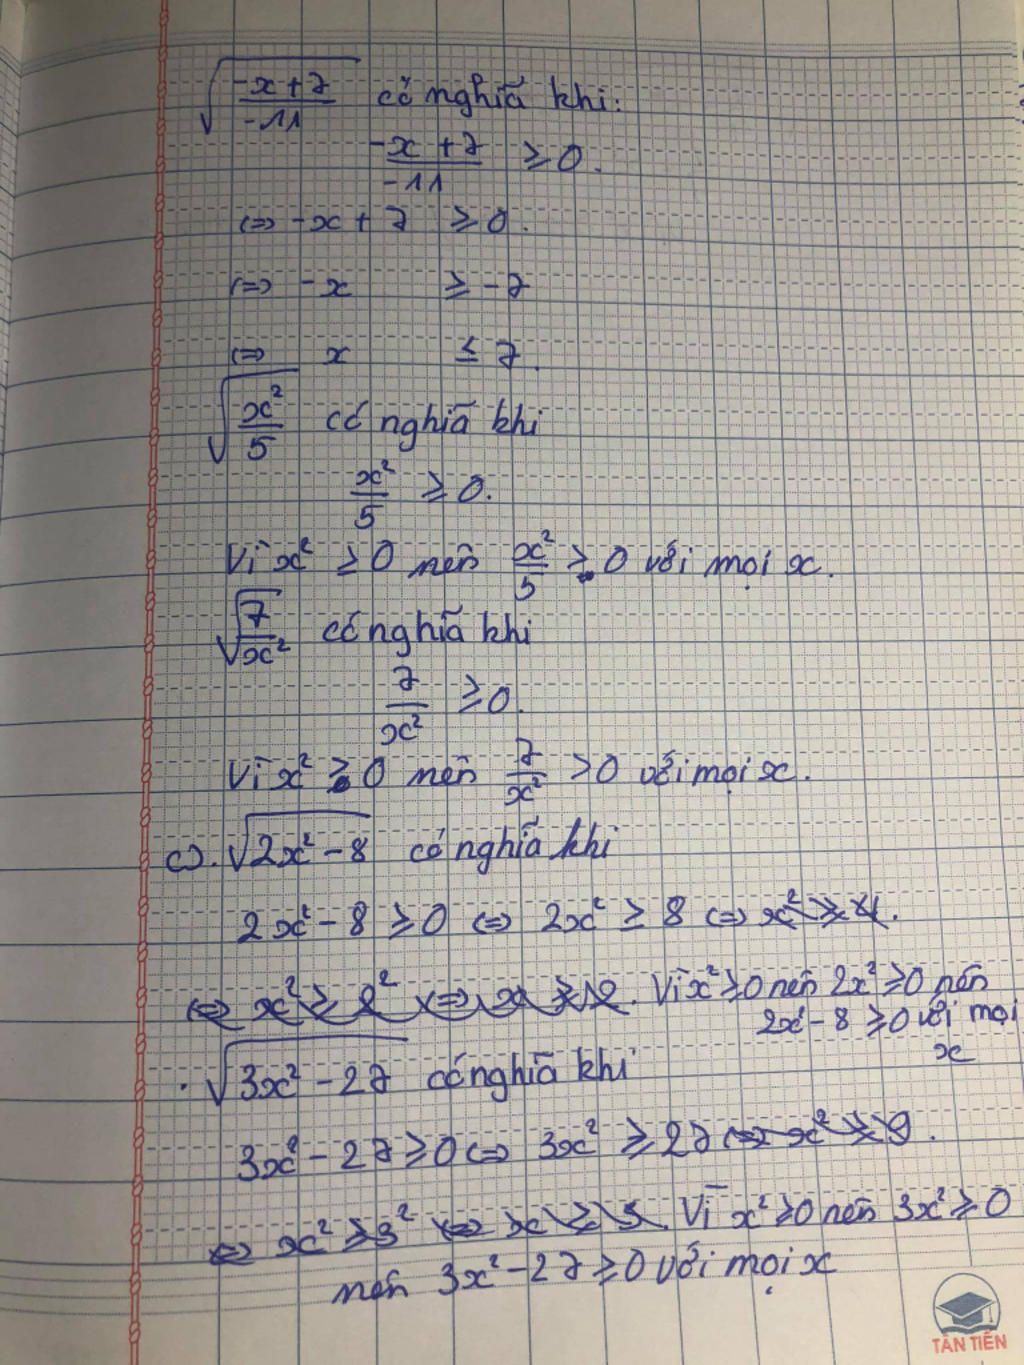 √((-x+7)/(-11)) có nghĩa khi:
(-x+7)/(-11) ≥ 0.
⇔ -x + 7 ≥ 0.
⇔ -x ≥ -7
⇔ x ≤ 7.
√(x²/5) có nghĩa khi
x²/5 ≥ 0.
Vì x² ≥ 0 nên x²/5 ≥ 0 với mọi x.
√(7/x²) có nghĩa khi
7/x² ≥ 0.
Vì x² ≥ 0 nên 7/x² > 0 với mọi x.
c). √(2x² - 8) có nghĩa khi
2x² - 8 ≥ 0 ⇔ 2x² ≥ 8 ⇔ x² ≥ 4.
⇔ x² ≥ 2² ⇔ x ≥ 2. Vì x² ≥ 0 nên 2x² ≥ 0 nên
2x² - 8 ≥ 0 với mọi
x
. √(3x² - 27) có nghĩa khi
3x² - 27 ≥ 0 ⇔ 3x² ≥ 27 ⇔ x² ≥ 9.
⇔ x² ≥ 3² ⇔ x ≥ 3. Vì x² ≥ 0 nên 3x² ≥ 0
nên 3x² - 27 ≥ 0 với mọi x
TÂN TIẾN